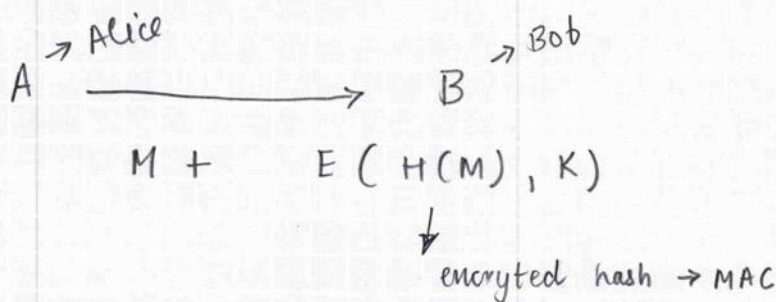 A → Alice
B → Bob
M + E ( H(M) , K )
encryted hash → MAC